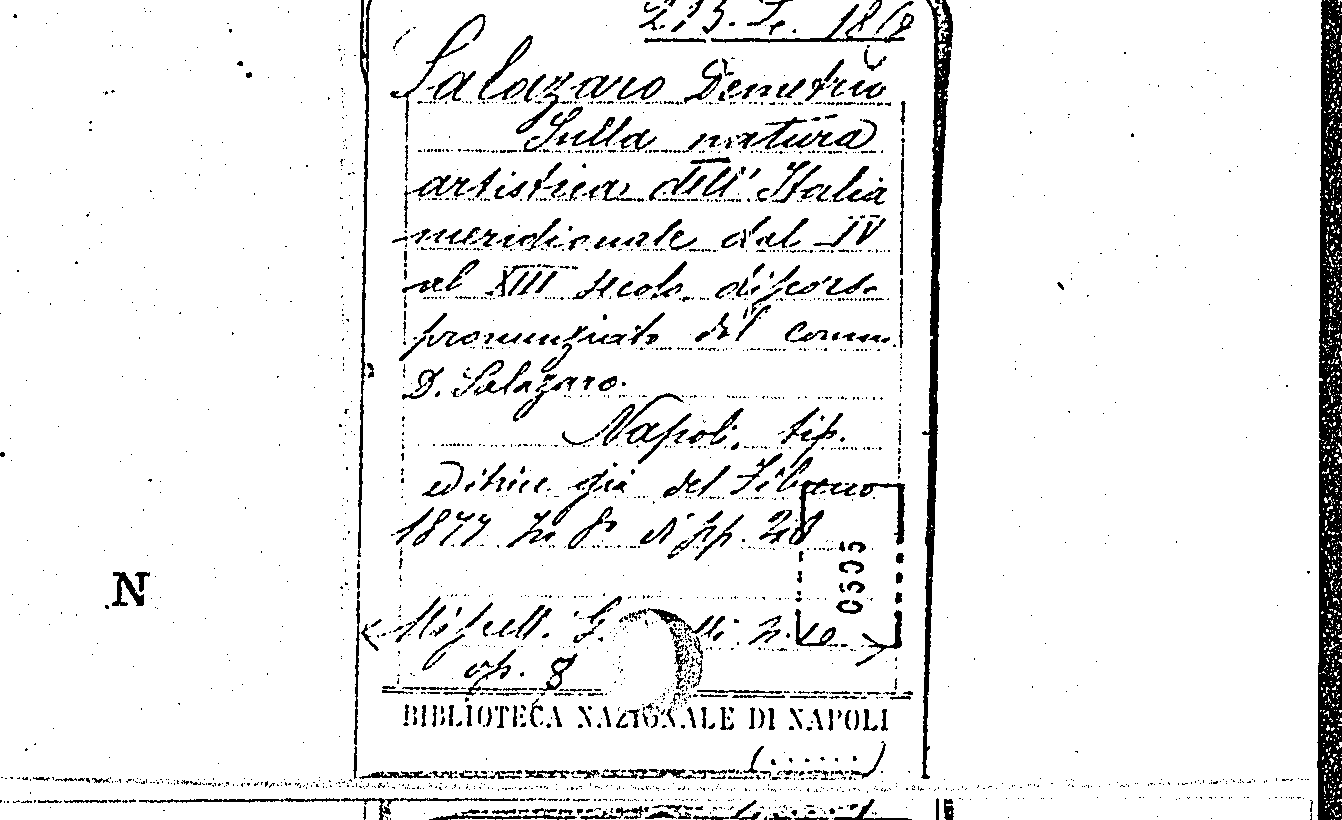 Salazaro Demetrio
Sulla natura
artistica dell' Italia
meridionale dal IV
al XIII secolo, discorso
pronunziato dal comm.
D. Salazaro.
Napoli, tip.
editrice già del Fibreno
1877 In 8° di pp. 28
0505
N
Miscell. G.
op. 8
BIBLIOTECA NAZIONALE DI NAPOLI
(......)